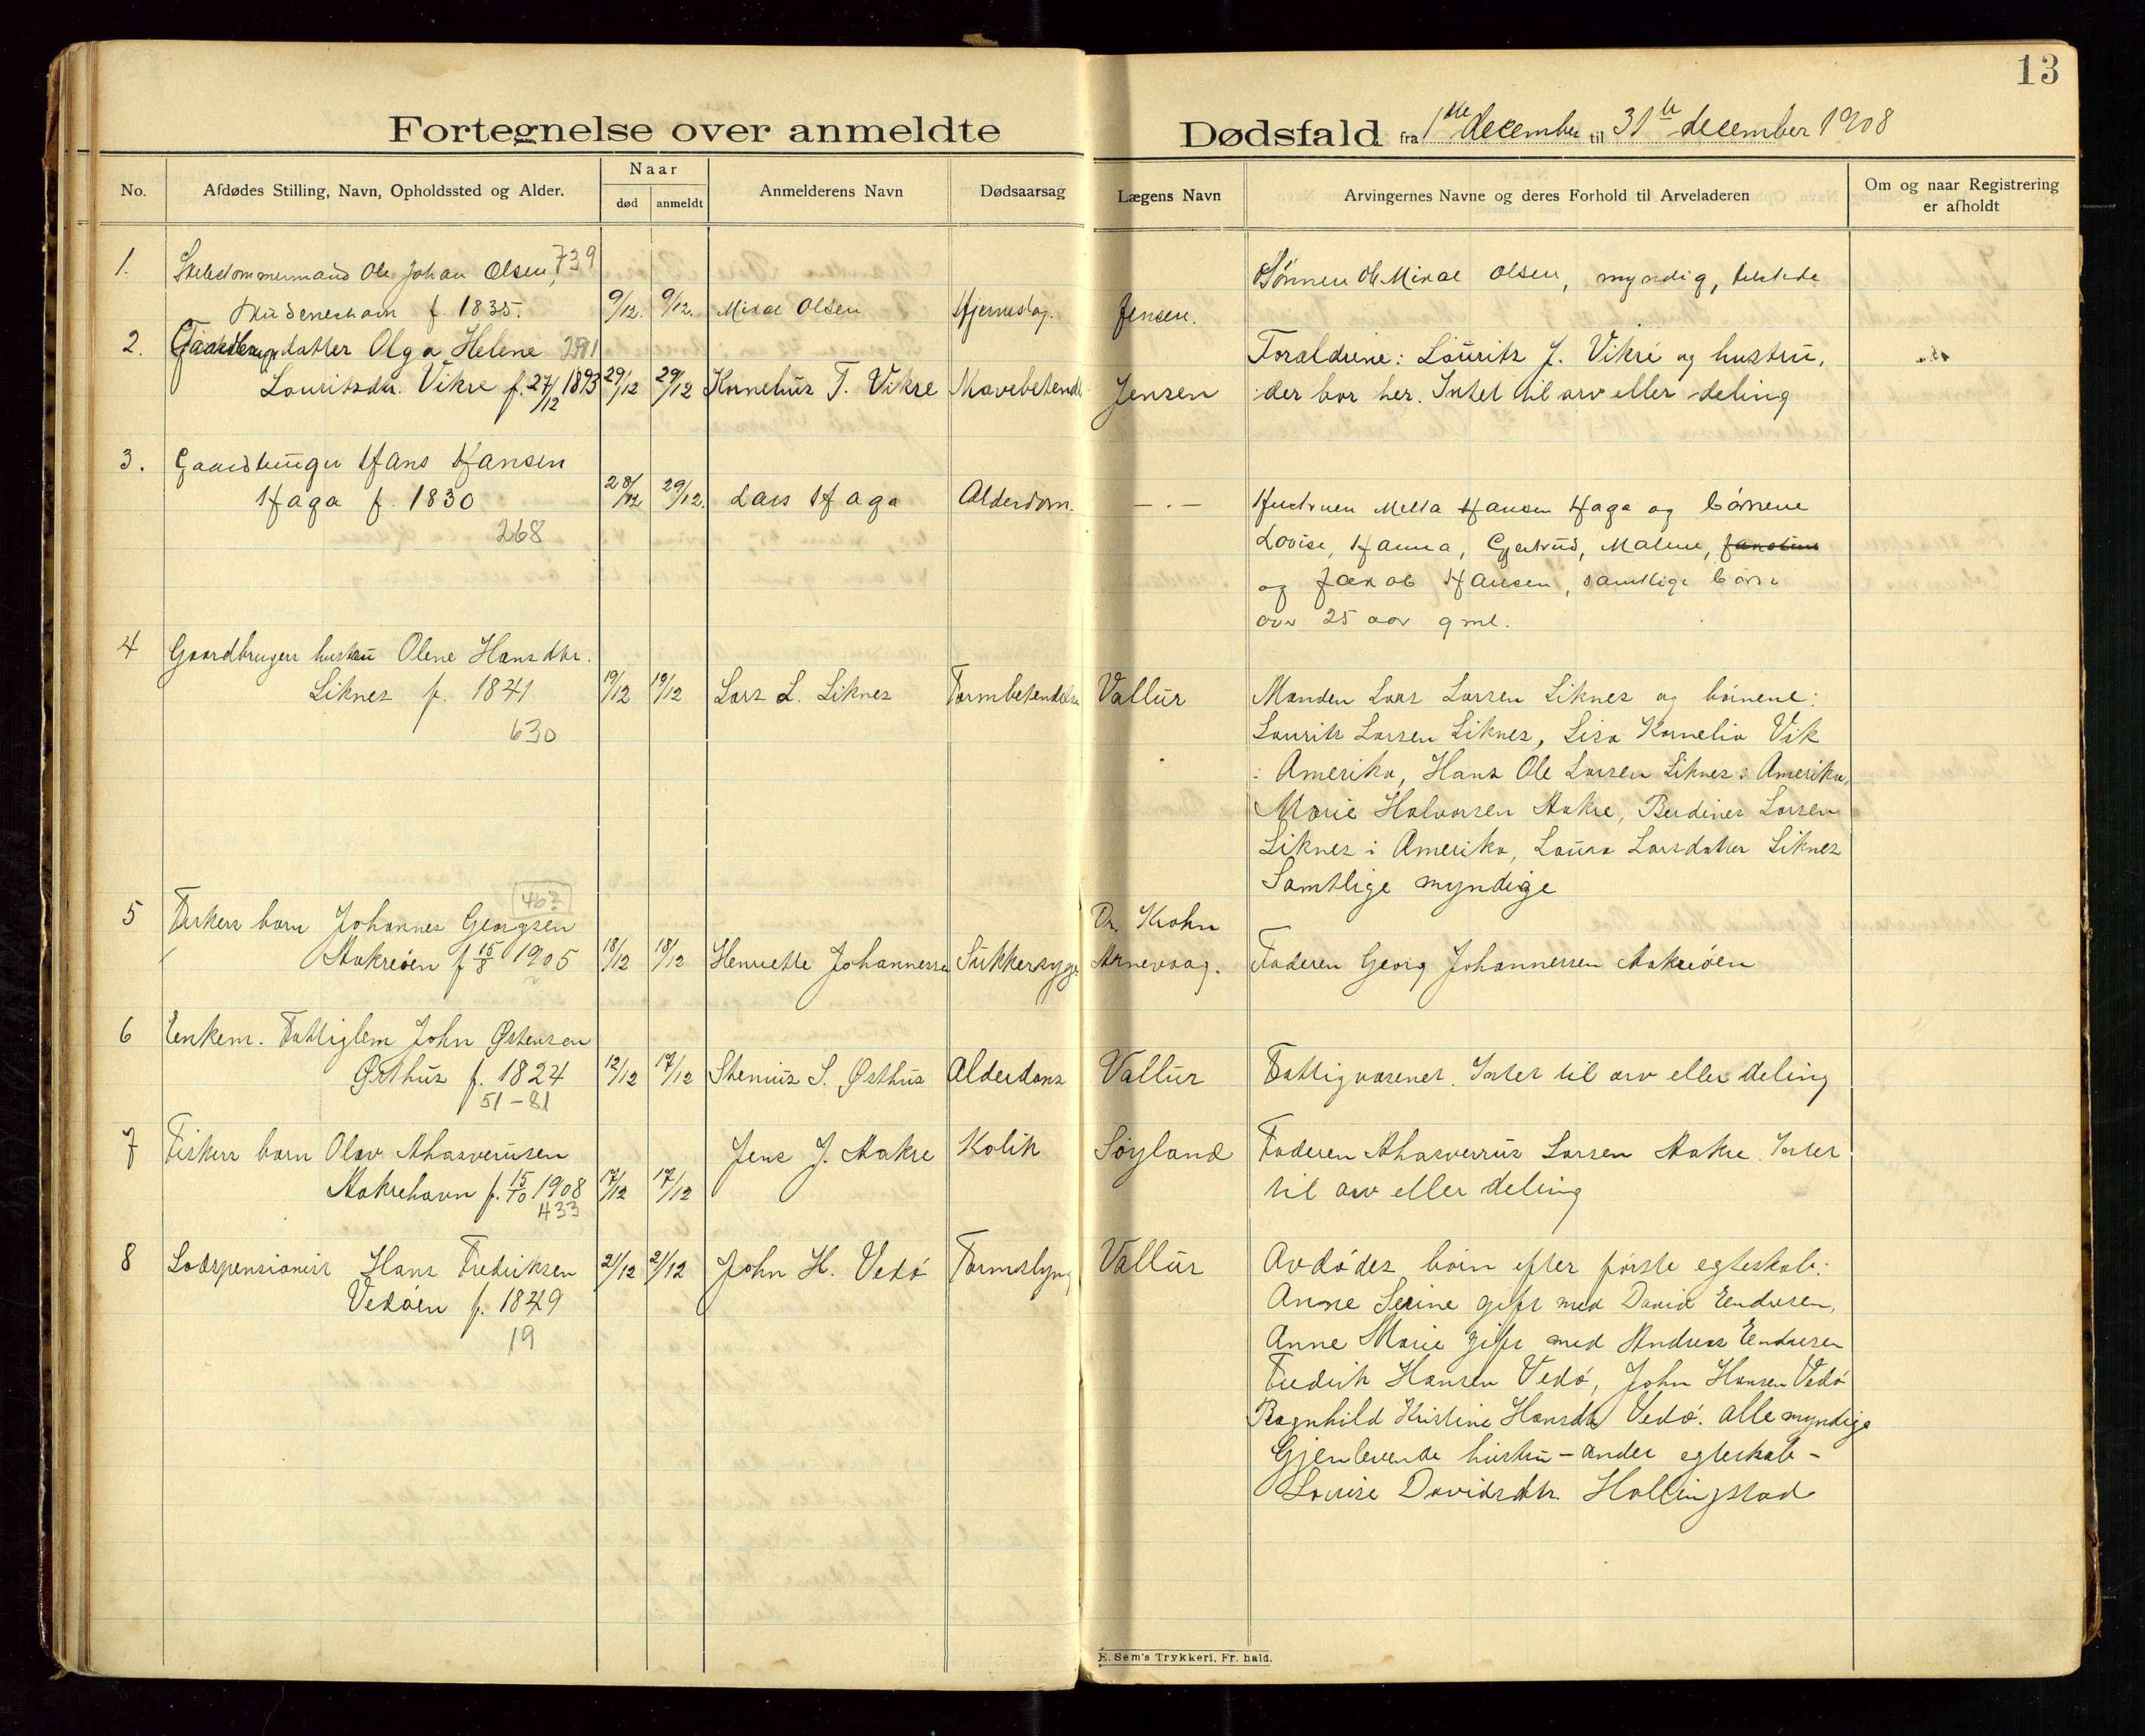 13
Fortegnelse over anmeldte Dødsfald fra 1ste december til 31te december 1908
No.
Afdødes Stilling, Navn, Opholdssted og Alder.
Naar
død
anmeldt
Anmelderens Navn
Dødsaarsag
Lægens Navn
Arvingernes Navne og deres Forhold til Arveladeren
Om og naar Registrering
er afholdt
1.
Skibstømmermand Ole Johan Olsen, 739
f. 1835.
9/12. 9/12.
Mikal Olsen
Hjerneslag.
Jensen.
Sønnen Mikal Olsen, myndig,
2.
datter Olga Helene
Lauritsdtr. Vikre f. 27/12 1893
29/12 29/12
Kornelius T. Vikre
Mavebetend.
Jensen
Forældrene: Laurits J. Vikre og hustru,
der bor her. Intet til arv eller deling
3.
Gaardbruger Hans Hansen
Haga f. 1830
268
28/12 29/12.
Lars Haga
Alderdom.
— . —
Hustruen Melta Hansen Haga og børnene
Lovise, Hanna, Gjertrud, Malene,
og Jakob Hansen, samtlige børn
over 25 aar gml.
4
Gaardbrugers hustru Olene Hansdtr.
Liknes f. 1841
630
19/12 19/12
Lars L. Liknes
Tarmbetendelse
Vallur
Manden Lars Larsen Liknes og børnene:
Laurits Larsen Liknes, Lisa Kornelia Vik
i Amerika, Hans Ole Larsen Liknes i Amerika,
Marie Halvorsen Aakre, Berdines Larsen
Liknes i Amerika, Laura Larsdatter Liknes
Samtlige myndige
5
467
Fiskers barn Johannes Georgsen
Aakreøen f 15/8 1905
18/12 18/12
Henriette Johannessen
Sukkersyge
Dr. Krohn
Arnevaag.
Faderen Georg Johannessen Aakreøen
6
Enkem. Fattiglem John Østensen
Østhus f. 1824
51-81
12/12 17/12
Stenius S. Østhus
Alderdoms
Vallur
Fattigvæsenet. Intet til arv eller deling
7
Fiskers barn Olav Ahasverusen
Aakrehavn f. 15/10 1908
433
17/12 17/12
Jens J. Aakre
Kolik
Søyland
Faderen Ahasverus Larsen Aakre. Intet
til arv eller deling
8
Lodspensionist Hans Fredriksen
Vedøen f. 1849
19
21/12 21/12
John H. Vedø
Tarmslyng
Vallur
Avdødes børn efter første egteskab:
Anne Serine gift med David Endresen,
Anne Marie gift med Andreas Endresen
Fredrik Hansen Vedø, John Hansen Vedø
Ragnhild Kristine Hansdtr Vedø. alle myndige
Gjenlevende hustru - andet egteskab -
Lovise Davidsdtr. Hallingstad
E. Sem's Trykkeri, Fr. hald.